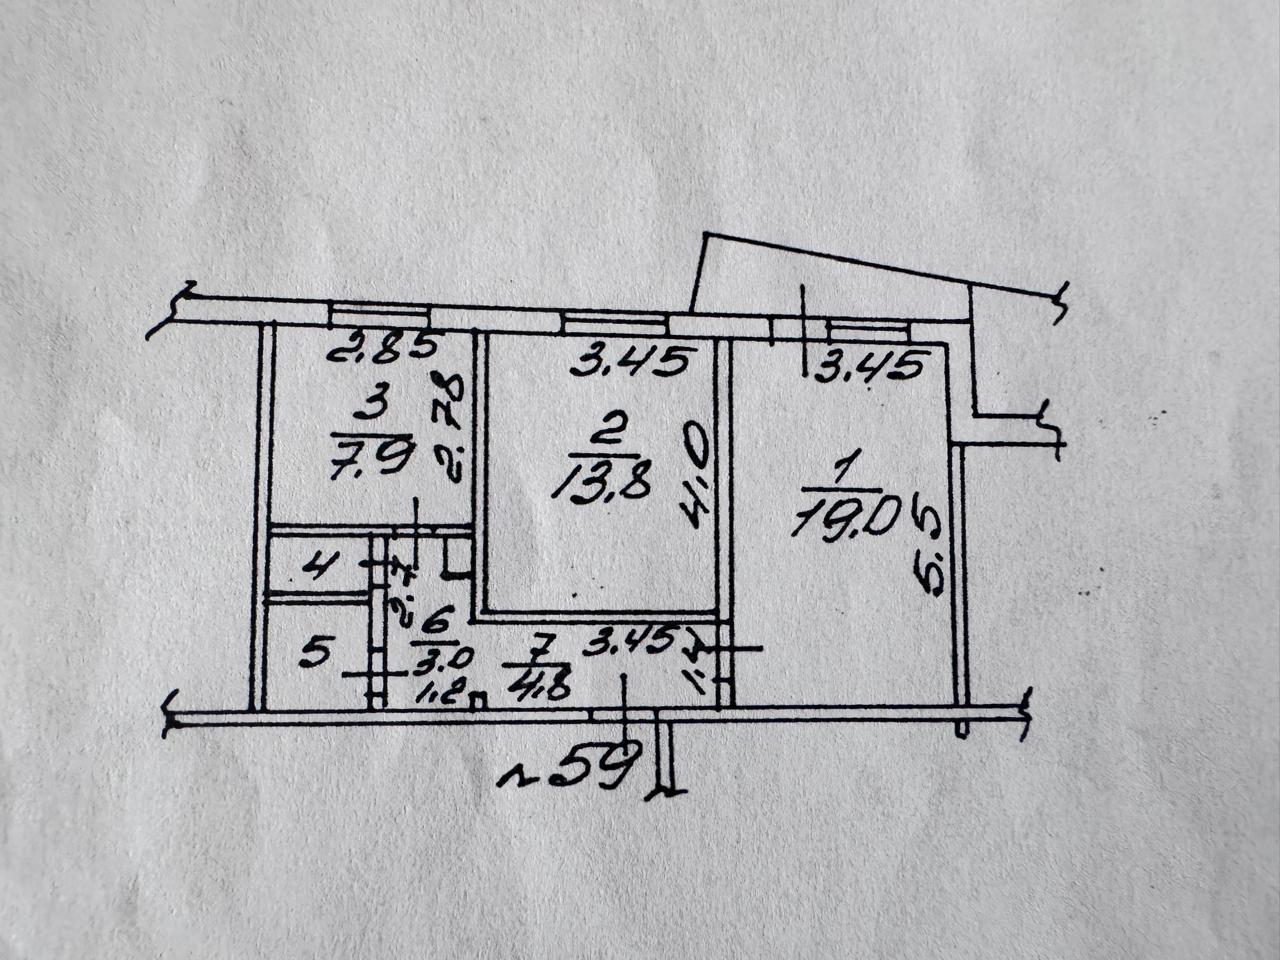 2.85
3
7.9
2.78
3.45
2
13.8
4.0
3.45
1
19.0
5.5
4
5
2.7
6
3.0
1.2
7
4.8
3.45
1.4
~59